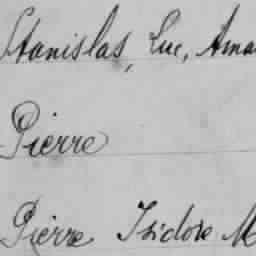 Stanislas, Luc, Ama
Pierre
Pierre Isidore M